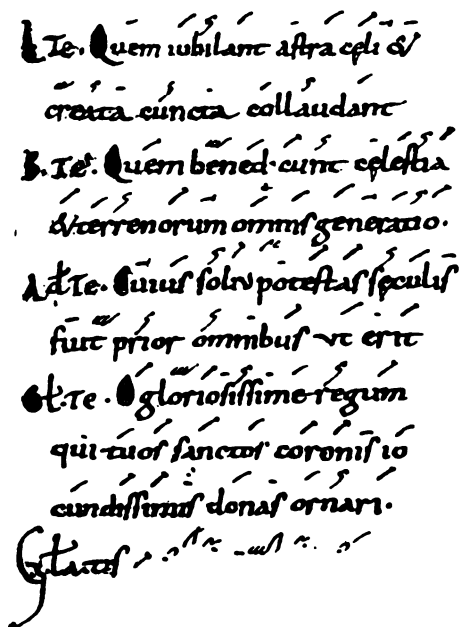 L Te. Quem iubilant astra cęli &
creata cuncta collaudant
B. Te. Quem bened. cunt cęlestia
& terrenorum omnis generatio.
Ad. Te. Cuius soliu potestas sęculis
fuit prior omnibus ut erit
Gł. Te. O gloriosissime regum
qui tuos sanctos coronis io
cundissimis donas ornari.